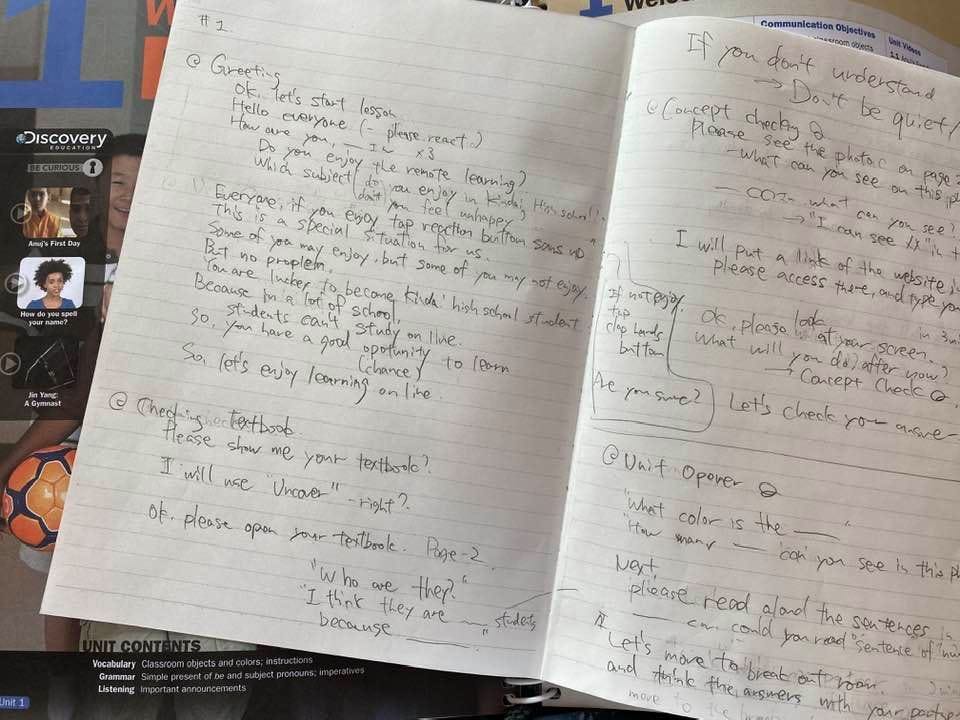 1
Welco
Communication Objectives
Unit Videos
classroom objects
Discovery
EDUCATION
BE CURIOUS
Anuj's First Day
How do you spell
your name?
Jin Yang:
A Gymnast
UNIT CONTENTS
Vocabulary Classroom objects and colors; instructions
Grammar Simple present of be and subject pronouns; imperatives
Listening Important announcements
Unit 1
#1.
@ Greeting
Ok, let's start lesson
Hello everyone (- please react)
How are you, ×3
Do you enjoy the remote learning?
Which subject do you enjoy in Kindai High school?
don't
you feel unhappy
Everyone, if you enjoy tap reaction buttom
This is a special situation for us.
Some of you may enjoy, but some of you may not enjoy.
But no problem.
You are lucky to become Kindai high school student
Because in a lot of school,
students can't study on line.
So, you have a good oportunity to learn
(chance)
So, let's enjoy learning on line.
@ Checking textbook.
Please show me your textbook?
I will use "Uncover" - right?
Ok, please open your textbook. Page-2.
"Who are they?"
"I think they are ___ students
because ___"
If you don't understand
→ Don't be quiet!
@ Concept checking Q
Please see the photo c on page 2
- what can you see on this
what can you see?
→ "I can see
I will put a link of the website
please access there, and type
Ok, please look at your screen.
What will you do after now?
→ Concept check Q.
Let's check your answer
If not enjoy,
tap
clap hands
button
Are you sure?
@ Unit Opener Q
"What color is the ___"
"How many ___ can you see in this
Next
please read aloud the sentences in
could you read "sentence of
Let's move to break out room.
and think the answers with your partner
move to the